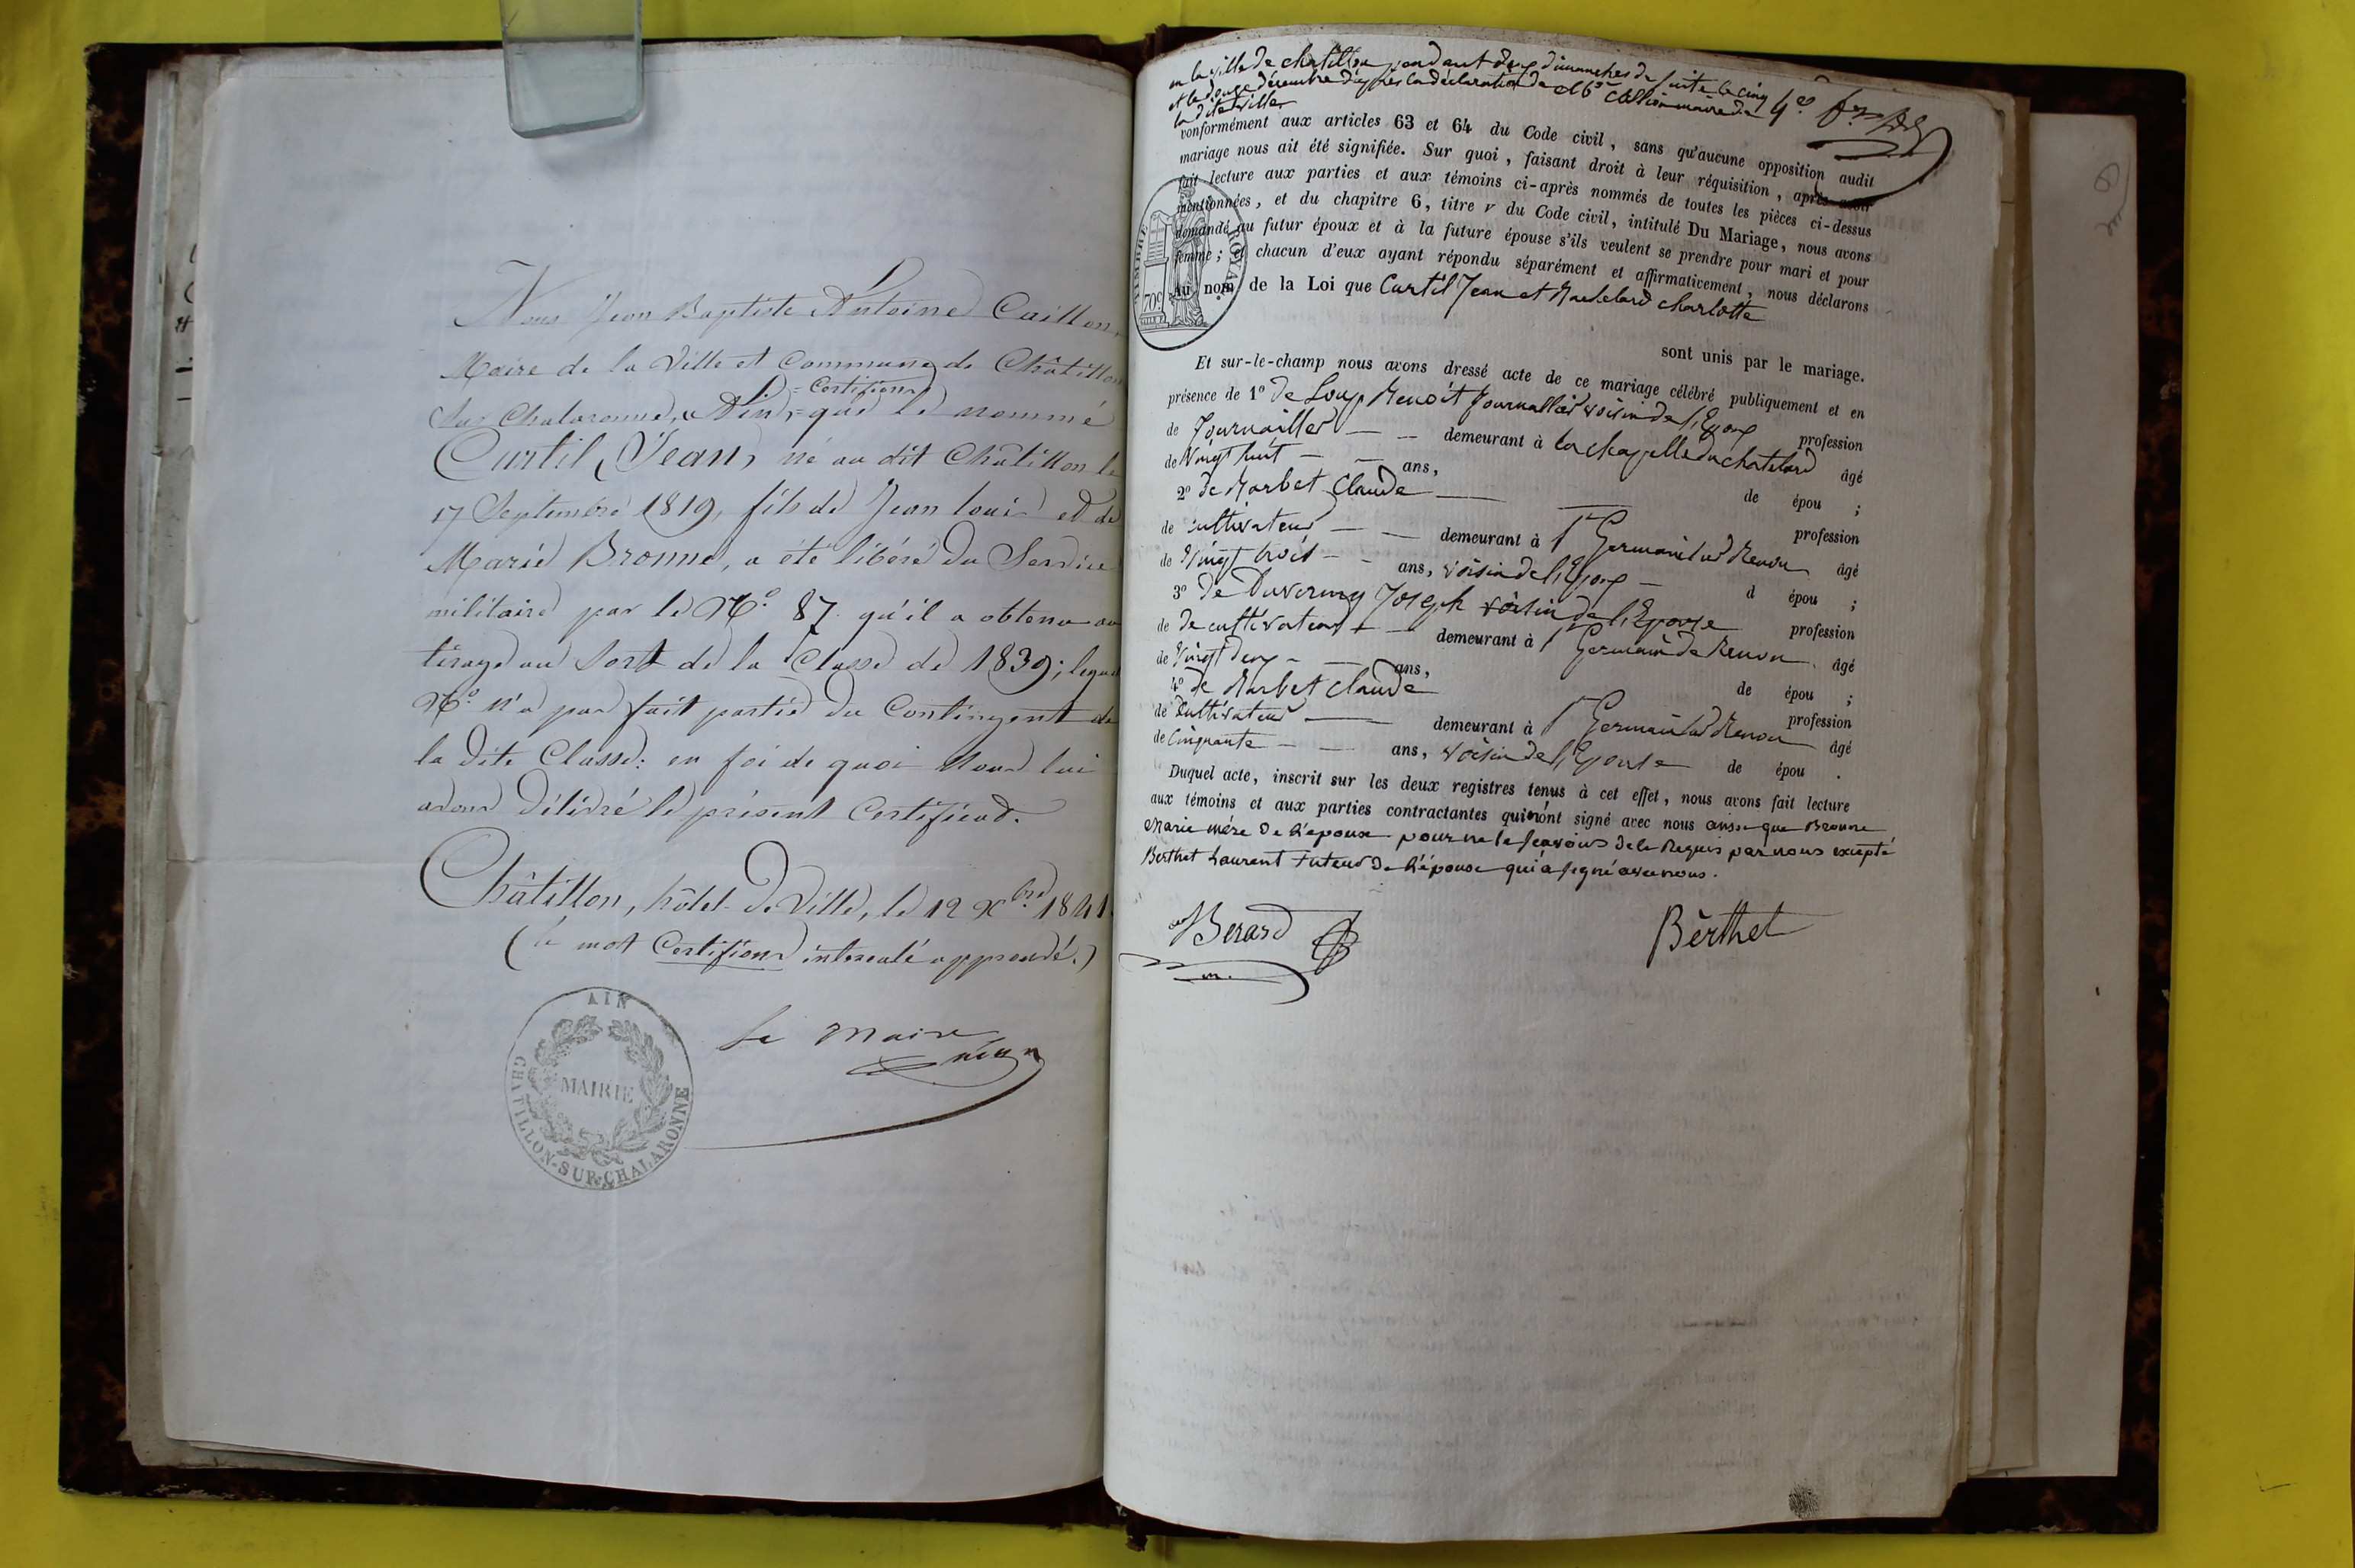 Nous Jean Baptiste Antoine Caillon,
Maire de la Ville et Commune de Châtillon
= Certifions
sur Chalaronne, Ain, = que le nommé
Curtil, Jean, né au dit Châtillon le
17 Septembre 1819, fils de Jean Louis et de
Marie Bronne, a été libéré du Service
militaire par le N° 87 qu'il a obtenu au
tirage au Sort de la Classe de 1839; lequel
N° n'a pas fait partie du Contingent de
la dite Classe: en foi de quoi Nous lui
avons délivré le présent Certificat.
Châtillon, hôtel de Ville, le 12 Xbre 1841
(le mot Certifions intercalé approuvé.)
Le Maire
AIN
MAIRIE
CHATILLON-SUR-CHALARONNE
en la ville de chatillon pendant deux dimanches de suite le cinq
et le douze décembre d'après la déclaration de maire de
la dite ville
conformément aux articles 63 et 64 du Code civil, sans qu'aucune opposition audit
mariage nous ait été signifiée. Sur quoi, faisant droit à leur réquisition, après avoir
fait lecture aux parties et aux témoins ci-après nommés de toutes les pièces ci-dessus
mentionnées, et du chapitre 6, titre v du Code civil, intitulé Du Mariage, nous avons
demandé au futur époux et à la future épouse s'ils veulent se prendre pour mari et pour
femme; et chacun d'eux ayant répondu séparément et affirmativement, nous déclarons
au nom de la Loi que Curtil Jean et charlotte
TIMBRE ROYAL
70c
sont unis par le mariage.
Et sur-le-champ nous avons dressé acte de ce mariage célébré publiquement et en
présence de 1° de Loup Benoit Journallier voisin de l'Epoux profession
de Journallier demeurant à la chapelle du chatelard âgé
de Vingt huit ans, de épou ;
2° de Morbet Claude profession
de cultivateur demeurant à St Germain sur Renon âgé
de Vingt trois ans, voisin de l'Epoux d épou ;
3° de Duverney Joseph voisin de l'Epouse profession
de de cultivateur demeurant à St Germain de Renon âgé
de Vingt deux ans, de épou ;
4° de Morbet Claude profession
de Cultivateur demeurant à St Germain sur Renon âgé
de Cinquante ans, voisin de l'Epouse de épou .
Duquel acte, inscrit sur les deux registres tenus à cet effet, nous avons fait lecture
aux témoins et aux parties contractantes qui n'ont signé avec nous ainsi que Bronne
Marie mère de l'époux pour ne le scavoirs de le Requis par nous excepté
Berthet Laurent tuteur de l'épouse qui a signé avec nous.
Berard
Berthet